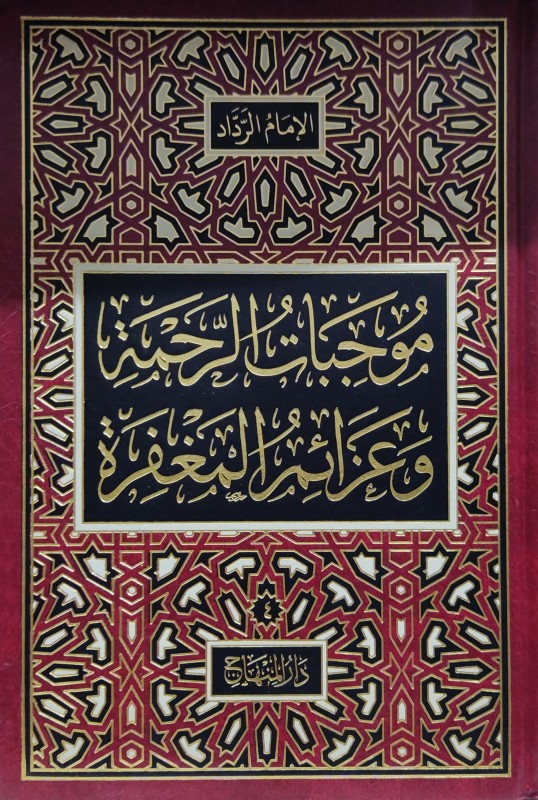 الإمام الرَّدَّاد
مُوجِبَاتُ الرَّحْمَةِ
وَعَزَائِمُ المَغْفِرَةِ
٤
دَارُ المِنْهَاجِ